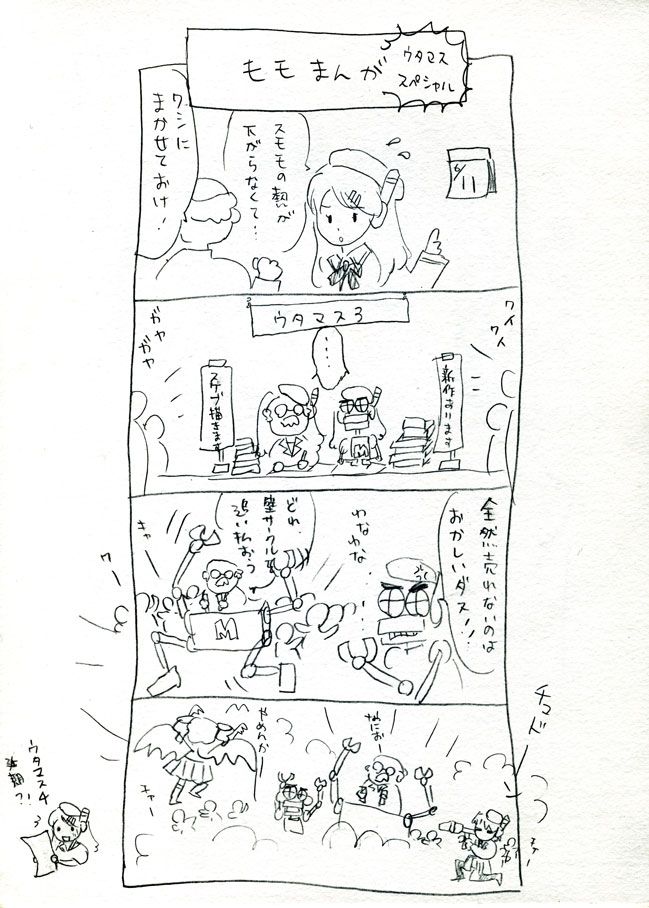 モモまんが
ウタマス
スペシャル
6/11
スモモの熱が
下がらなくて…
ワシに
まかせておけ!
ウタマス3
ワイワイ
ガヤガヤ
……
新作あります
スケブ描きます
全然売れないのは
おかしいダス!!
わなわな…
どれ、
壁サークルを
追い払おう
キャー
ワー
M
チマドー
なにおー
やめんかー
キャー
ウタマス4
延期?!